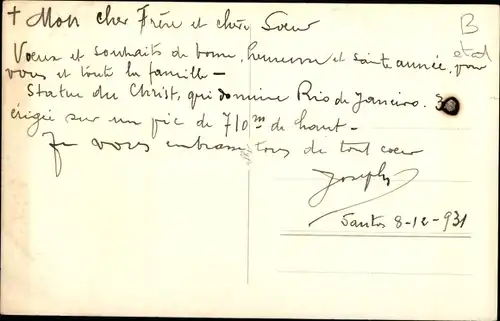 + Mon cher Frère et chère Soeur
Voeux et souhaits de bonne, heureuse et sainte année, pour
vous et toute la famille -
Statue du Christ, qui domine Rio de Janeiro. 
érigée sur un pic de 710m de haut -
Je vous embrasse tous de tout coeur
Joseph
Santos 8-12-931
B